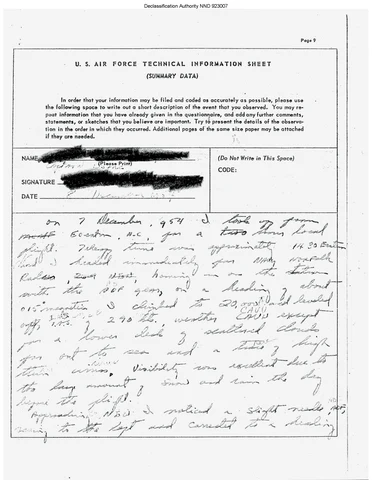 Declassification Authority NND 923007
Page 9
U. S. AIR FORCE TECHNICAL INFORMATION SHEET
(SUMMARY DATA)
In order that your information may be filed and coded as accurately as possible, please use
the following space to write out a short description of the event that you observed. You may re-
peat information that you have already given in the questionnaire, and add any further comments,
statements, or sketches that you believe are important. Try to present the details of the observa-
tion in the order in which they occurred. Additional pages of the same size paper may be attached
if they are needed.
NAME
(Please Print)
(Do Not Write in This Space)
CODE:
SIGNATURE
DATE
on 7 December, 1954 I took off from
for a hour local
flight. Takeoff time was approximately 1430
and I headed immediately for Norfolk
Radio, homing in on the station
with the ADF gear, on a heading of about
015 magnetic I climbed to 20,000 and leveled
off, weather CAVU except
for a lower deck of scattered clouds
far out to sea and a of high
thin cirrus. Visibility was excellent due to
the large amount of snow and rain the day
before the flight.
Approaching I noticed a slight needle,
to the left and corrected to a heading